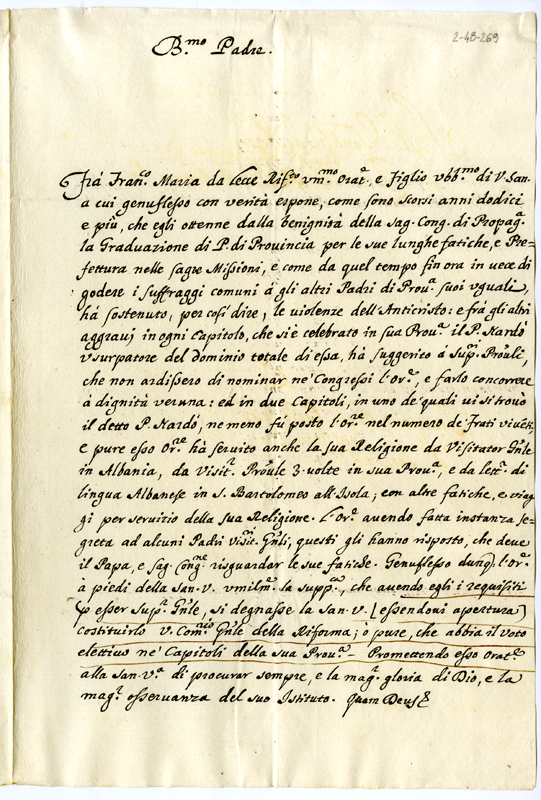 2-48-269
B.mo Padre.
Frá Fran.co Maria da Lecce Rif.to vm.mo Orat.e, e Figlio vbb.mo di V. San.
a cui genuflesso con verità espone, come sono scorsi anni dodici
e più, che egli ottenne dalla benignità della Sag. Cong. di Propag.
la Graduazione di P. di Provincia per le sue lunghe fatiche, e Pre=
fettura nelle sagre Missioni, e come da quel tempo fin ora in vece di
godere i suffraggi comuni à gli altri Padri di Prou.a suoi vguali,
hà sostenuto, per così dire, le violenze dell'Anticristo: e frà gli altri
aggrauj in ogni Capitolo, che si è celebrato in sua Prou.a il P. Nardò
vsurpatore del dominio totale di essa, hà suggerito à Sup.ri Prouli,
che non ardissero di nominar ne' Congressi l'Or.e, e farlo concorrere
à dignità veruna: ed in due Capitoli, in uno de' quali ui si trouò
il detto P. Nardò, ne meno fù posto l'Or.e nel numero de' Frati viuēti,
e pure esso Or.e hà seruito anche la sua Religione da Visitator Gñle
in Albania, da Visit.r Prõule 3. volte in sua Prou.a, e da lett.e di
lingua Albanese in S. Bartolomeo all'Isola; con altre fatiche, e viag
gi per seruizio della sua Religione. L'Or.e auendo fatta instanza se=
greta ad alcuni Padri Visit.ri Gñli, questi gli hanno risposto, che deue
il Papa, e Sag. Cong.ne risguardar le sue fatiche. Genuflesso dunq. l'Or.e
à piedi della San. V. vmilm.te la supp.ca, che auendo egli i requisiti
p esser Sup.e Gñle, si degnasse la San. V. [essendoui apertura]
costituirlo V. Com.rio Gñle della Riforma; ò pure, che abbia il voto
elettiuo ne' Capitoli della sua Prou.a - Promettendo esso Orat.e
alla San. V.a di procurar sempre, e la mag.r gloria di Dio, e la
mag.r osseruanza del suo Istituto. Quam Deus &